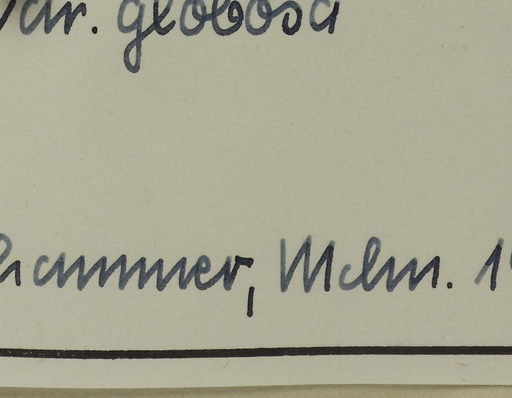 var. globosa
hammer, Mclm. 19